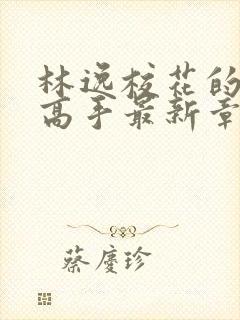 林逸校花的
高手最新章
蔡庆珍